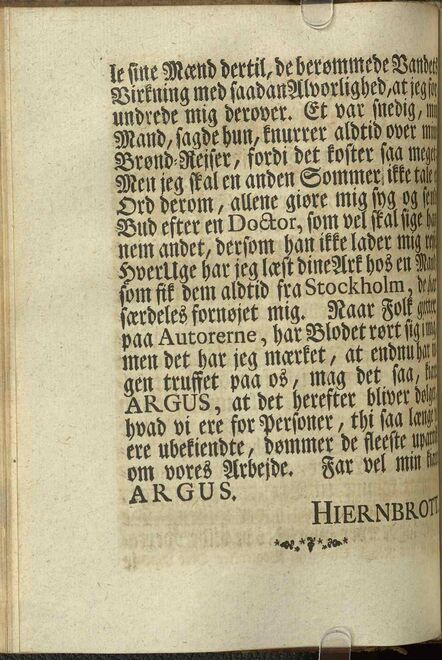 le sine Mænd dertil, de berømmede Vandets
Virkning med saadan Alvorlighed, at jeg
undrede mig derover. Et var snedig,
Mand, sagde hun, knurrer aldtid over
Brønd-Rejser, fordi det koster saa meget
Men jeg skal en anden Sommer, ikke tale
Ord derom, allene giøre mig syg og
Bud efter en Doctor, som vel skal sige
nem andet, dersom han ikke lader mig
Hver Uge har jeg læst dine Ark hos en
som fik dem aldtid fra Stockholm, de
særdeles fornøjet mig. Naar Folk
paa Autorerne, har Blodet rørt sig i
men det har jeg mærket, at endnu har
gen truffet paa os, mag det saa,
ARGUS, at det herefter bliver
hvad vi ere for Personer, thi saa længe
ere ubekiendte, dømmer de fleeste
om vores Arbejde. Far vel min
ARGUS.
HIERNBROT